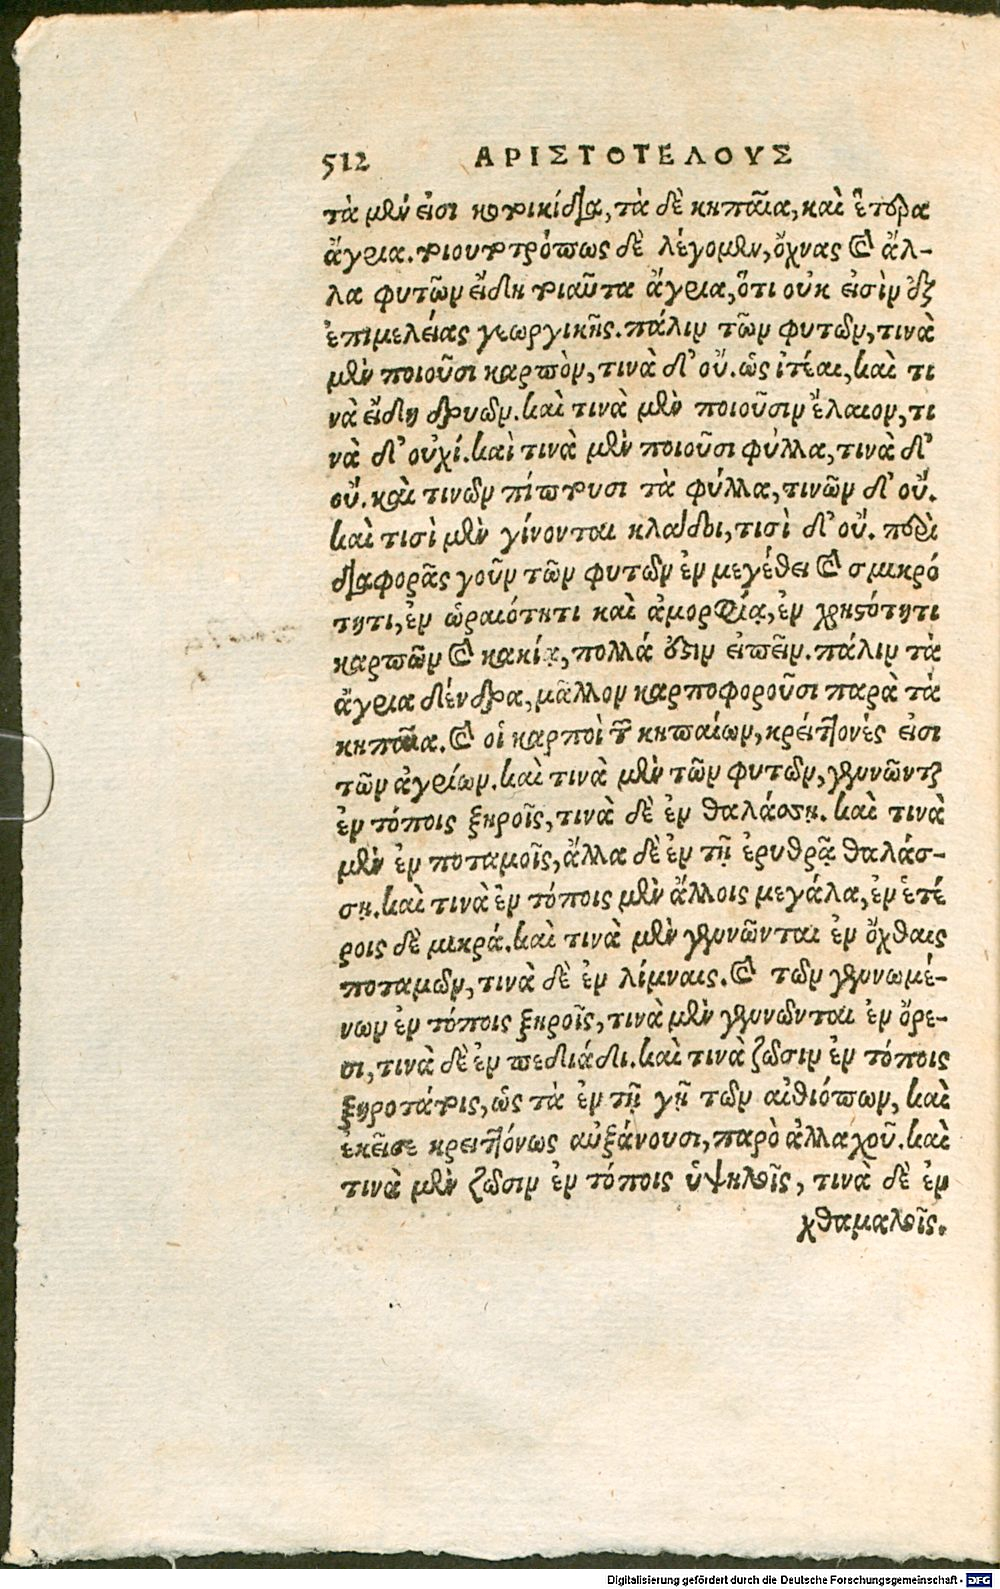 512 ΑΡΙΣΤΟΤΕΛΟΥΣ
τὰ μέν εἰσι κατοικίδια, τὰ δὲ κηπαῖα, καὶ ἕτερα
ἄγρια. τοιουτοτρόπως δὲ λέγομεν, ὄχνας καὶ ἄλ-
λα φυτῶν εἴδη τοιαῦτα ἄγρια, ὅτι οὐκ εἰσὶν ἐξ
ἐπιμελείας γεωργικῆς. πάλιν τῶν φυτῶν, τινὰ
μὲν ποιοῦσι καρπὸν, τινὰ δ' οὔ. ὡς ἰτέαι, καὶ τι
νὰ εἴδη δρυῶν. καὶ τινὰ μὲν ποιοῦσιν ἔλαιον, τι
νὰ δ' οὐχί. καὶ τινὰ μὲν ποιοῦσι φύλλα, τινὰ δ'
οὔ. καὶ τινῶν πίπτουσι τὰ φύλλα, τινῶν δ' οὔ.
καὶ τισὶ μὲν γίνονται κλάδοι, τισὶ δ' οὔ. περὶ
διαφορᾶς γοῦν τῶν φυτῶν ἐν μεγέθει καὶ σμικρό
τητι, ἐν ὡραιότητι καὶ ἀμορφίᾳ, ἐν χρηστότητι
καρπῶν καὶ κακίᾳ, πολλά ἐστιν εἰπεῖν. πάλιν τὰ
ἄγρια δένδρα, μᾶλλον καρποφοροῦσι παρὰ τὰ
κηπαῖα. καὶ οἱ καρποὶ τῶν κηπαίων, κρείττονές εἰσι
τῶν ἀγρίων. καὶ τινὰ μὲν τῶν φυτῶν, γεννῶνται
ἐν τόποις ξηροῖς, τινὰ δὲ ἐν θαλάσσῃ. καὶ τινὰ
μὲν ἐν ποταμοῖς, ἄλλα δὲ ἐν τῇ ἐρυθρᾷ θαλάσ-
σῃ. καὶ τινὰ ἐν τόποις μὲν ἄλλοις μεγάλα, ἐν ἑτέ
ροις δὲ μικρά. καὶ τινὰ μὲν γεννῶνται ἐν ὄχθαις
ποταμῶν, τινὰ δὲ ἐν λίμναις. καὶ τῶν γεννωμέ-
νων ἐν τόποις ξηροῖς, τινὰ μὲν γεννῶνται ἐν ὄρε-
σι, τινὰ δὲ ἐν πεδιάδι. καὶ τινὰ ζῶσιν ἐν τόποις
ξηροτάτοις, ὡς τὰ ἐν τῇ γῇ τῶν αἰθιόπων, καὶ
ἐκεῖσε κρειττόνως αὐξάνουσι, παρὸ ἀλλαχοῦ. καὶ
τινὰ μὲν ζῶσιν ἐν τόποις ὑψηλοῖς, τινὰ δὲ ἐν
χθαμαλοῖς.
Digitalisierung gefördert durch die Deutsche Forschungsgemeinschaft - DFG